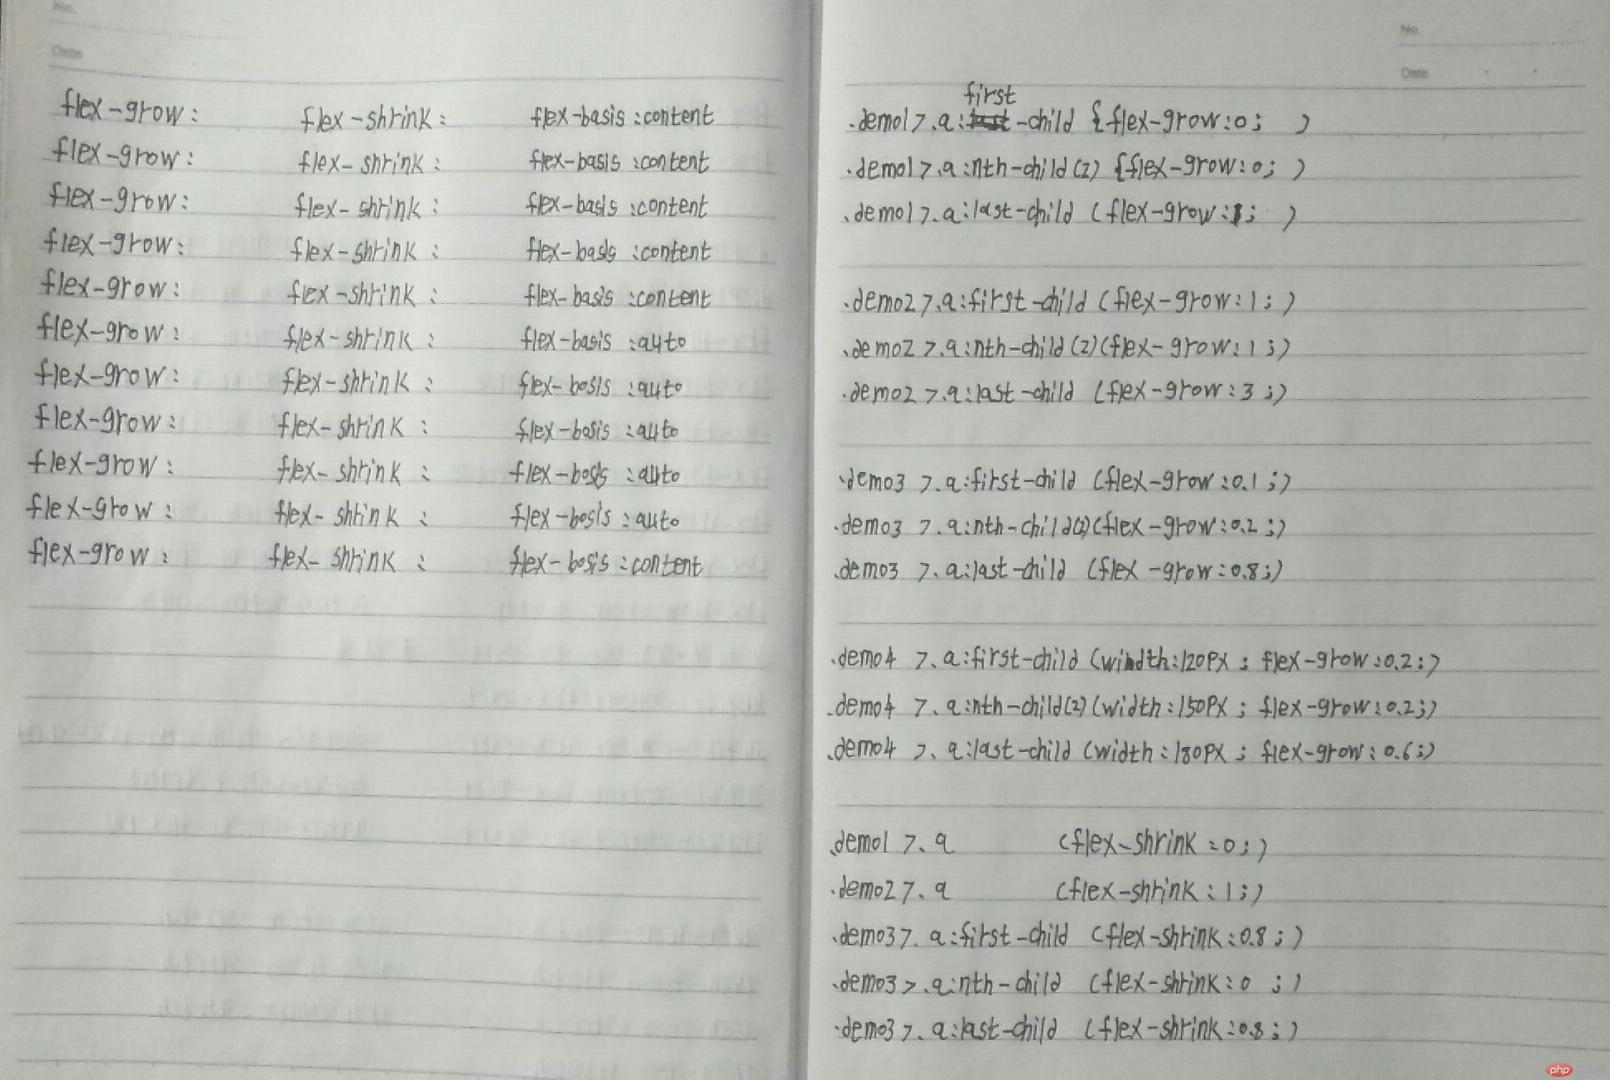 No.
Date
flex-grow: flex-shrink: flex-basis:content
flex-grow: flex-shrink: flex-basis:content
flex-grow: flex-shrink: flex-basis:content
flex-grow: flex-shrink: flex-basis:content
flex-grow: flex-shrink: flex-basis:content
flex-grow: flex-shrink: flex-basis:auto
flex-grow: flex-shrink: flex-basis:auto
flex-grow: flex-shrink: flex-basis:auto
flex-grow: flex-shrink: flex-basis:auto
flex-grow: flex-shrink: flex-basis:auto
flex-grow: flex-shrink: flex-basis:content
No.
Date
first
.demo1>.a:-child {flex-grow:0; )
.demo1>.a:nth-child(2) {flex-grow:0; )
.demo1>.a:last-child (flex-grow:1; )
.demo2>.a:first-child (flex-grow:1;)
.demo2>.a:nth-child(2)(flex-grow:1;)
.demo2>.a:last-child (flex-grow:3;)
.demo3 >.a:first-child (flex-grow:0.1;)
.demo3 >.a:nth-child(2)(flex-grow:0.2;)
.demo3 >.a:last-child (flex-grow:0.8;)
.demo4 >.a:first-child (windth:120px; flex-grow:0.2;)
.demo4 >.a:nth-child(2)(width:150px; flex-grow:0.2;)
.demo4 >.a:last-child (width:180px; flex-grow:0.6;)
.demo1>.a (flex-shrink:0;)
.demo2>.a (flex-shrink:1;)
.demo3>.a:first-child (flex-shrink:0.8;)
.demo3>.a:nth-child (flex-shrink:0 ;)
.demo3>.a:last-child (flex-shrink:0.8;)
php